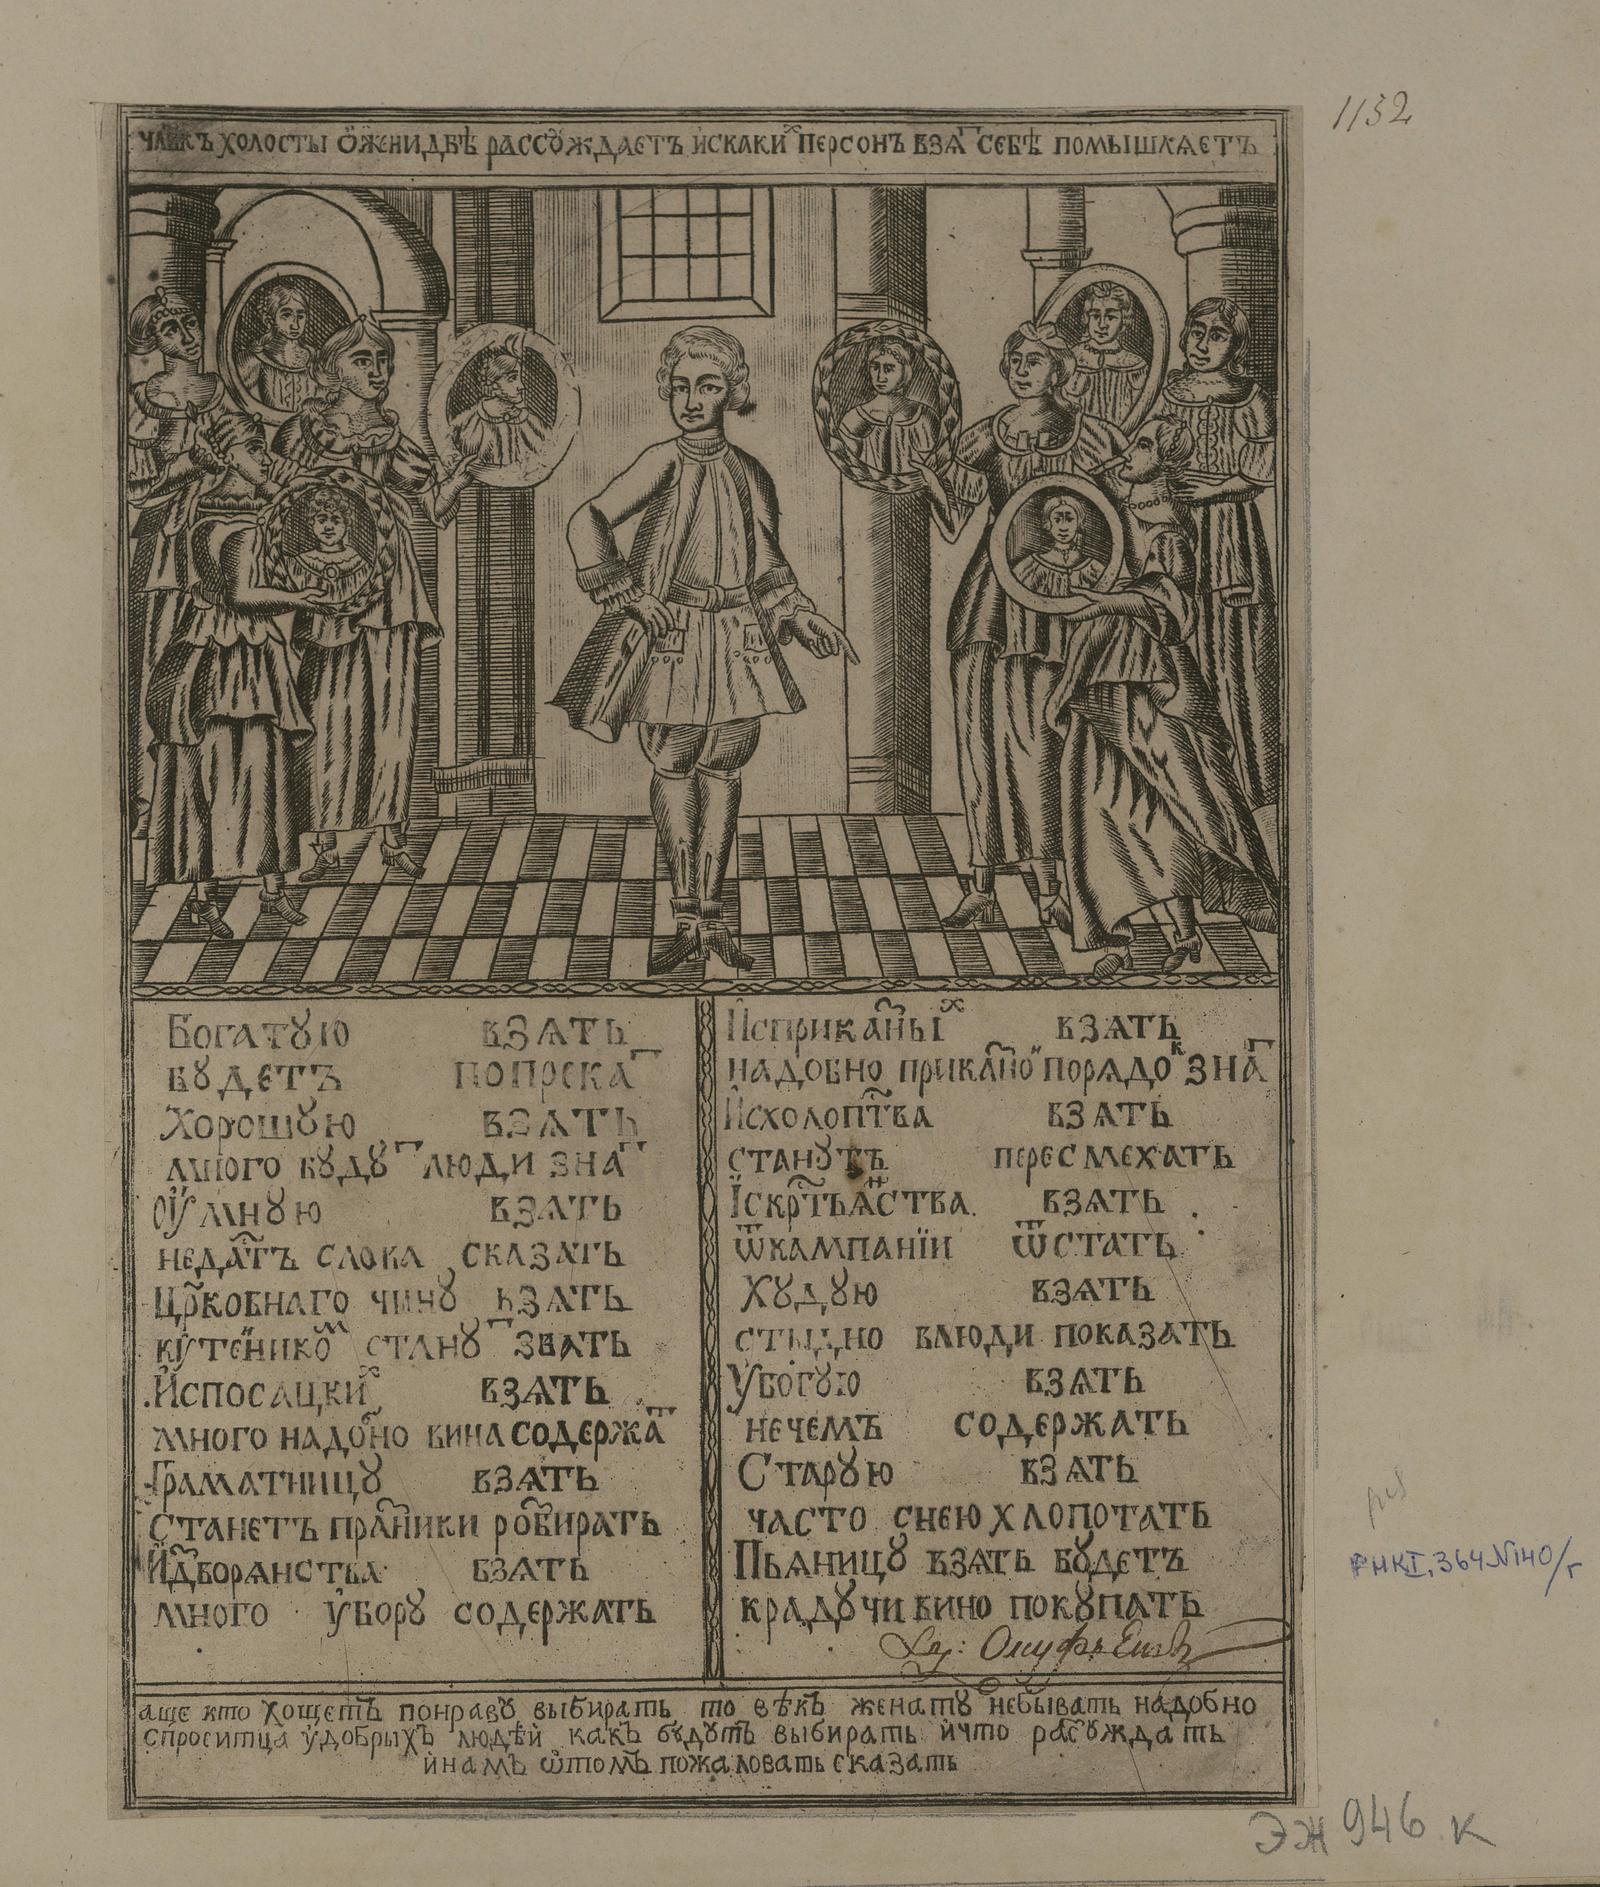 1132
члвкъ холосты ѡженидвѣ рассꙋждаетъ искаки х персонъ взят себѣ помышляетъ
Богатꙋю взять
бꙋдетъ попрекат
Хорошꙋю взять
много бꙋдꙋт люди знат
Оумнꙋю взять
недастъ слова сказать
Црковнаго чинꙋ взять
кутеиником станꙋт звать
Испосацких взять
много надобно вина содержат
Граматницꙋ взять
Станетъ праники розбирать
Издворянства взять
много уборꙋ содержать
Исприказных взять
надобно приказнои порядок знат
Исхолопства взять
станꙋтъ пересмехать
Iскртьянства взять
ѿкампанїи ѿстать
Хꙋдꙋю взять
стыдно влюди показать
Убогꙋю взять
нечемъ содержать
Старꙋю взять
часто снею хлопотать
Пьяницꙋ взять бꙋдетъ
крадꙋчи вино покꙋпать
аще кто хощетъ понравꙋ выбирать то вѣкъ женатꙋ небывать надобно
спроситца удобрыхъ людѣй какъ бꙋдꙋтъ выбирать ичто расꙋждать
инамъ ѡтомъ пожаловать сказать
ГНКI.364 N140/г
ЭЖ 946 к